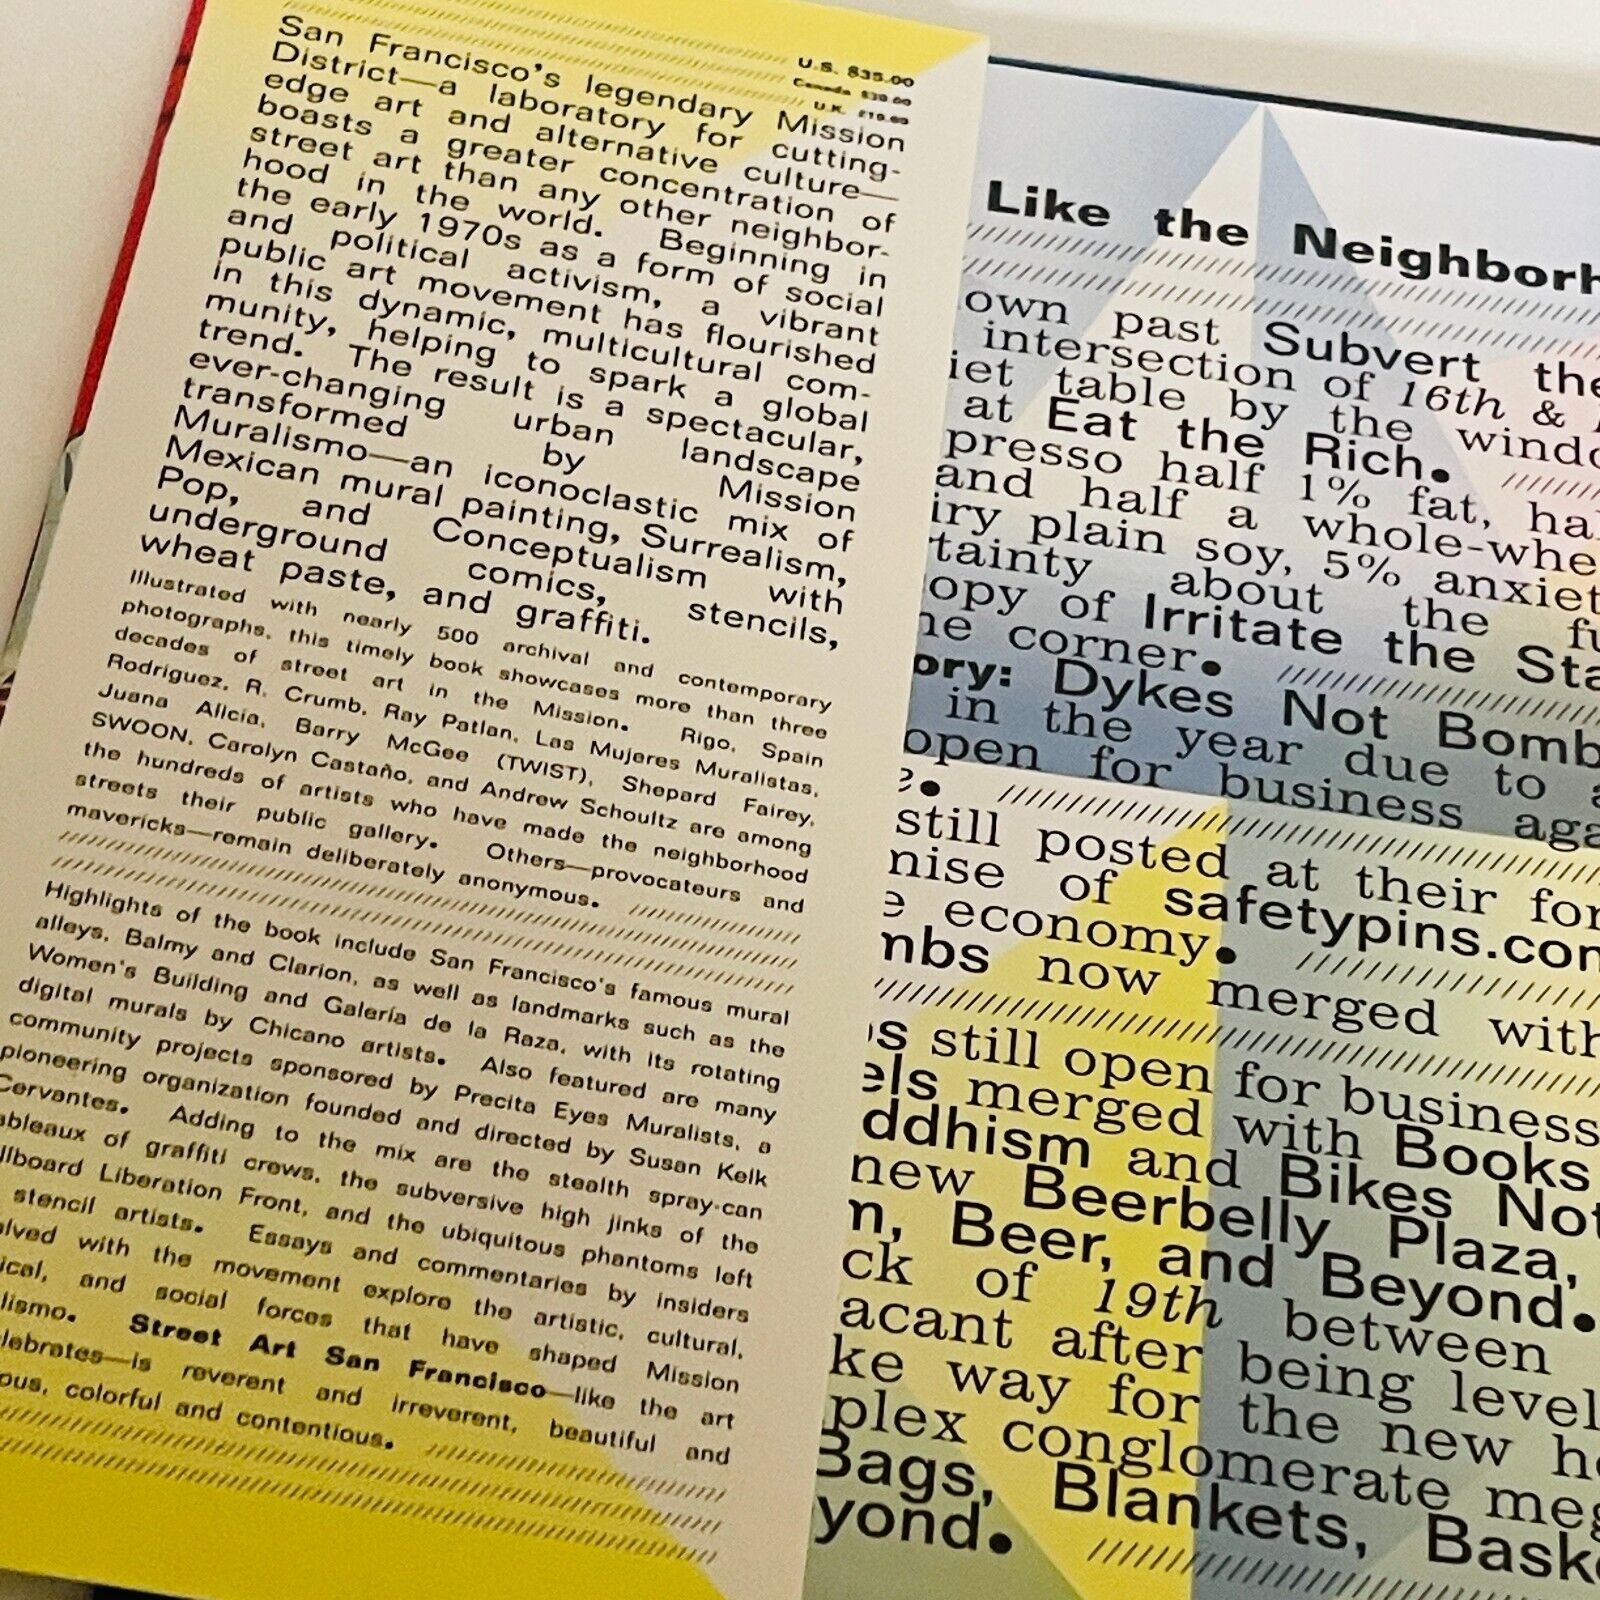 U.S. $35.00
Canada $39.00
U.K. £19.99
San Francisco's legendary Mission
District—a laboratory for cutting-
edge art and alternative culture—
boasts a greater concentration of
street art than any other neighbor-
hood in the world. Beginning in
the early 1970s as a form of social
and political activism, a vibrant
public art movement has flourished
in this dynamic, multicultural com-
munity, helping to spark a global
trend. The result is a spectacular,
ever-changing urban landscape
transformed by Mission
Muralismo—an iconoclastic mix of
Mexican mural painting, Surrealism,
Pop, and Conceptualism with
underground comics, stencils,
wheat paste, and graffiti.
Illustrated with nearly 500 archival and contemporary
photographs, this timely book showcases more than three
decades of street art in the Mission. Rigo, Spain
Rodriguez, R. Crumb, Ray Patlan, Las Mujeres Muralistas,
Juana Alicia, Barry McGee (TWIST), Shepard Fairey,
SWOON, Carolyn Castaño, and Andrew Schoultz are among
the hundreds of artists who have made the neighborhood
streets their public gallery. Others—provocateurs and
mavericks—remain deliberately anonymous. ////////////////
Highlights of the book include San Francisco's famous mural
alleys, Balmy and Clarion, as well as landmarks such as the
Women's Building and Galería de la Raza, with its rotating
digital murals by Chicano artists. Also featured are many
community projects sponsored by Precita Eyes Muralists, a
pioneering organization founded and directed by Susan Kelk
Cervantes. Adding to the mix are the stealth spray-can
ableaux of graffiti crews, the subversive high jinks of the
llboard Liberation Front, and the ubiquitous phantoms left
stencil artists. Essays and commentaries by insiders
lved with the movement explore the artistic, cultural,
ical, and social forces that have shaped Mission
lismo. Street Art San Francisco—like the art
lebrates—is reverent and irreverent, beautiful and
ous, colorful and contentious.
Like the Neighborh
own past Subvert the
intersection of 16th &
iet table by the windo
at Eat the Rich.
presso half 1% fat, hal
and half a whole-whe
iry plain soy, 5% anxiet
tainty about the fu
opy of Irritate the Sta
he corner.
ory: Dykes Not Bomb
in the year due to a
open for business aga
e.
still posted at their for
mise of safetypins.com
e economy.
mbs now merged with
s still open for business
els merged with Books
ddhism and Bikes Not
new Beerbelly Plaza,
n, Beer, and Beyond.
ck of 19th between
acant after being level
ke way for the new ho
plex conglomerate meg
Bags, Blankets, Bask
yond.